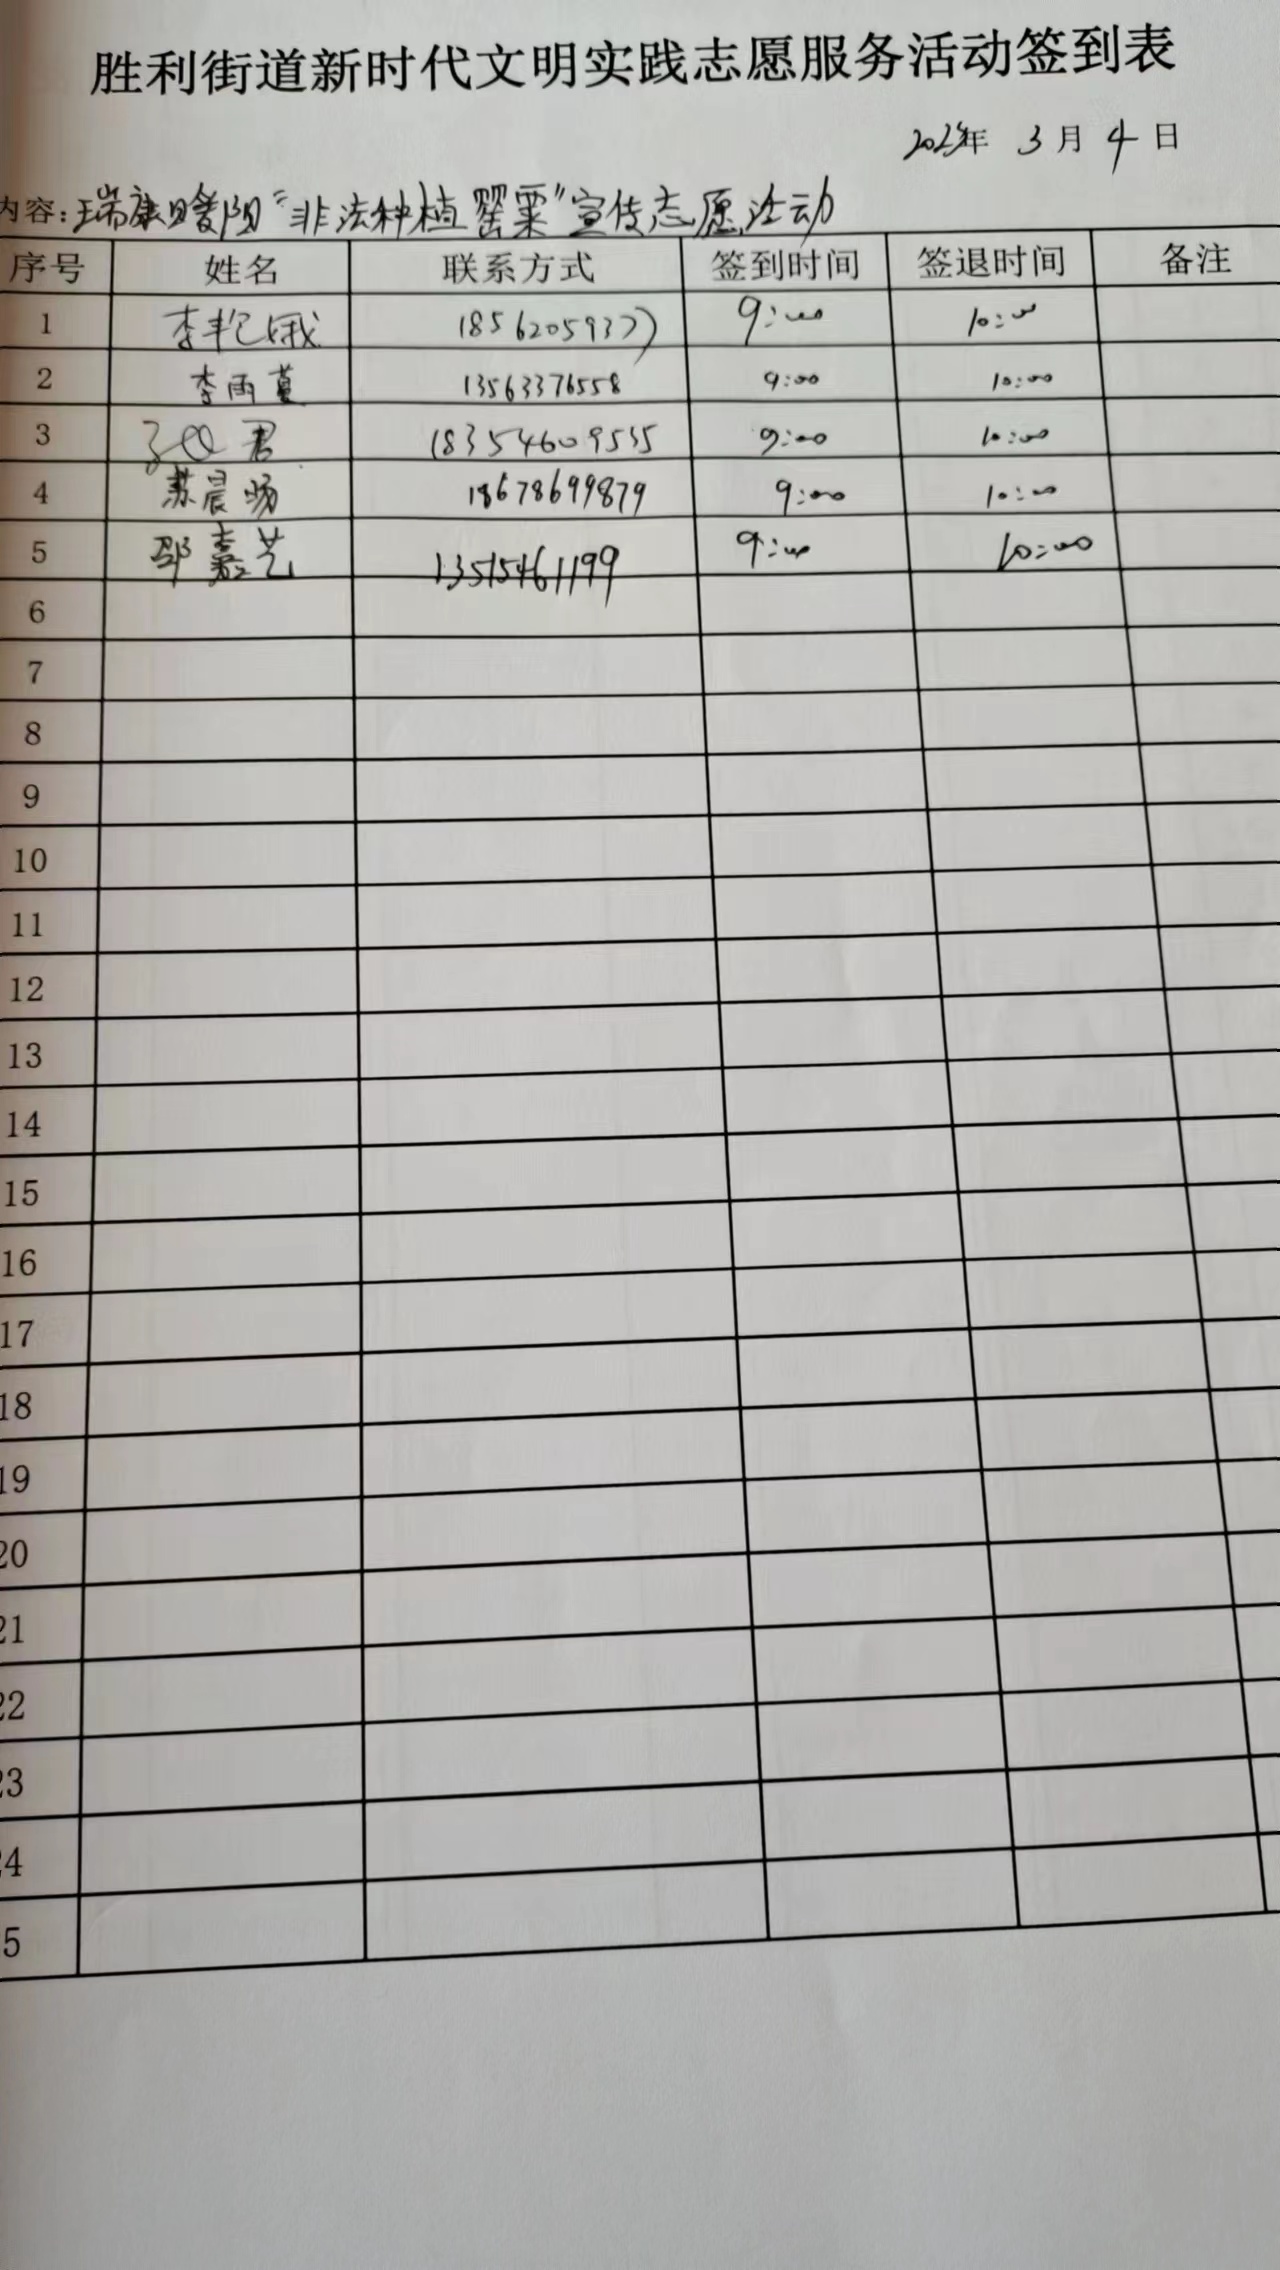 胜利街道新时代文明实践志愿服务活动签到表
2025年 3月 4日
内容：瑞康暖阳“非法种植罂粟”宣传志愿活动
序号 姓名 联系方式 签到时间 签退时间 备注
1 李艳娥 18562059377 9:00 10:00
2 李雨蔓 13563376558 9:00 10:00
3 君 18354609535 9:00 10:00
4 苏晨旸 18678699879 9:00 10:00
5 邵嘉艺 13515461199 9:00 10:00
6
7
8
9
10
11
12
13
14
15
16
17
18
19
20
21
22
23
24
5